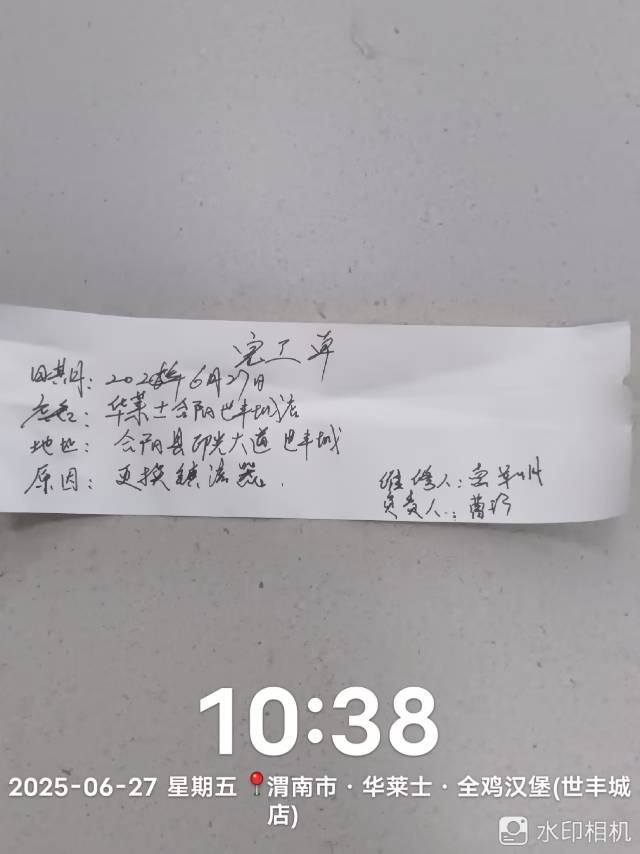 完工单
日期：2025年6月27日
店名：华莱士合阳世丰城店
地址：合阳县凤凰大道世丰城
原因：更换镇流器.
维修人：
负责人：曹巧
10:38
2025-06-27 星期五 渭南市·华莱士·全鸡汉堡(世丰城店)
水印相机